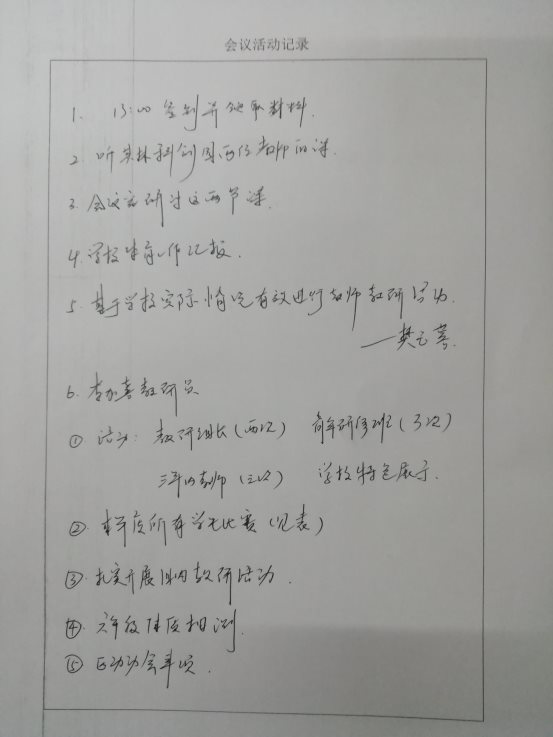 会议活动记录
1. 13:00 签到并领取材料.
2. 听英林科创园两位老师的课.
3. 会议室研讨这两节课.
4. 学校体育工作汇报.
5. 基于学校实际情况有效进行教师教研活动.
——樊云
6. 李加喜教研员
① 活动: 教研组长(两次) 青年研修班(3次)
三年内教师(三次) 学校特色展示.
② 本年度所有学生比赛(见表)
③ 扎实开展校内教研活动.
④ 六年级体质抽测.
⑤ 区动会事项.